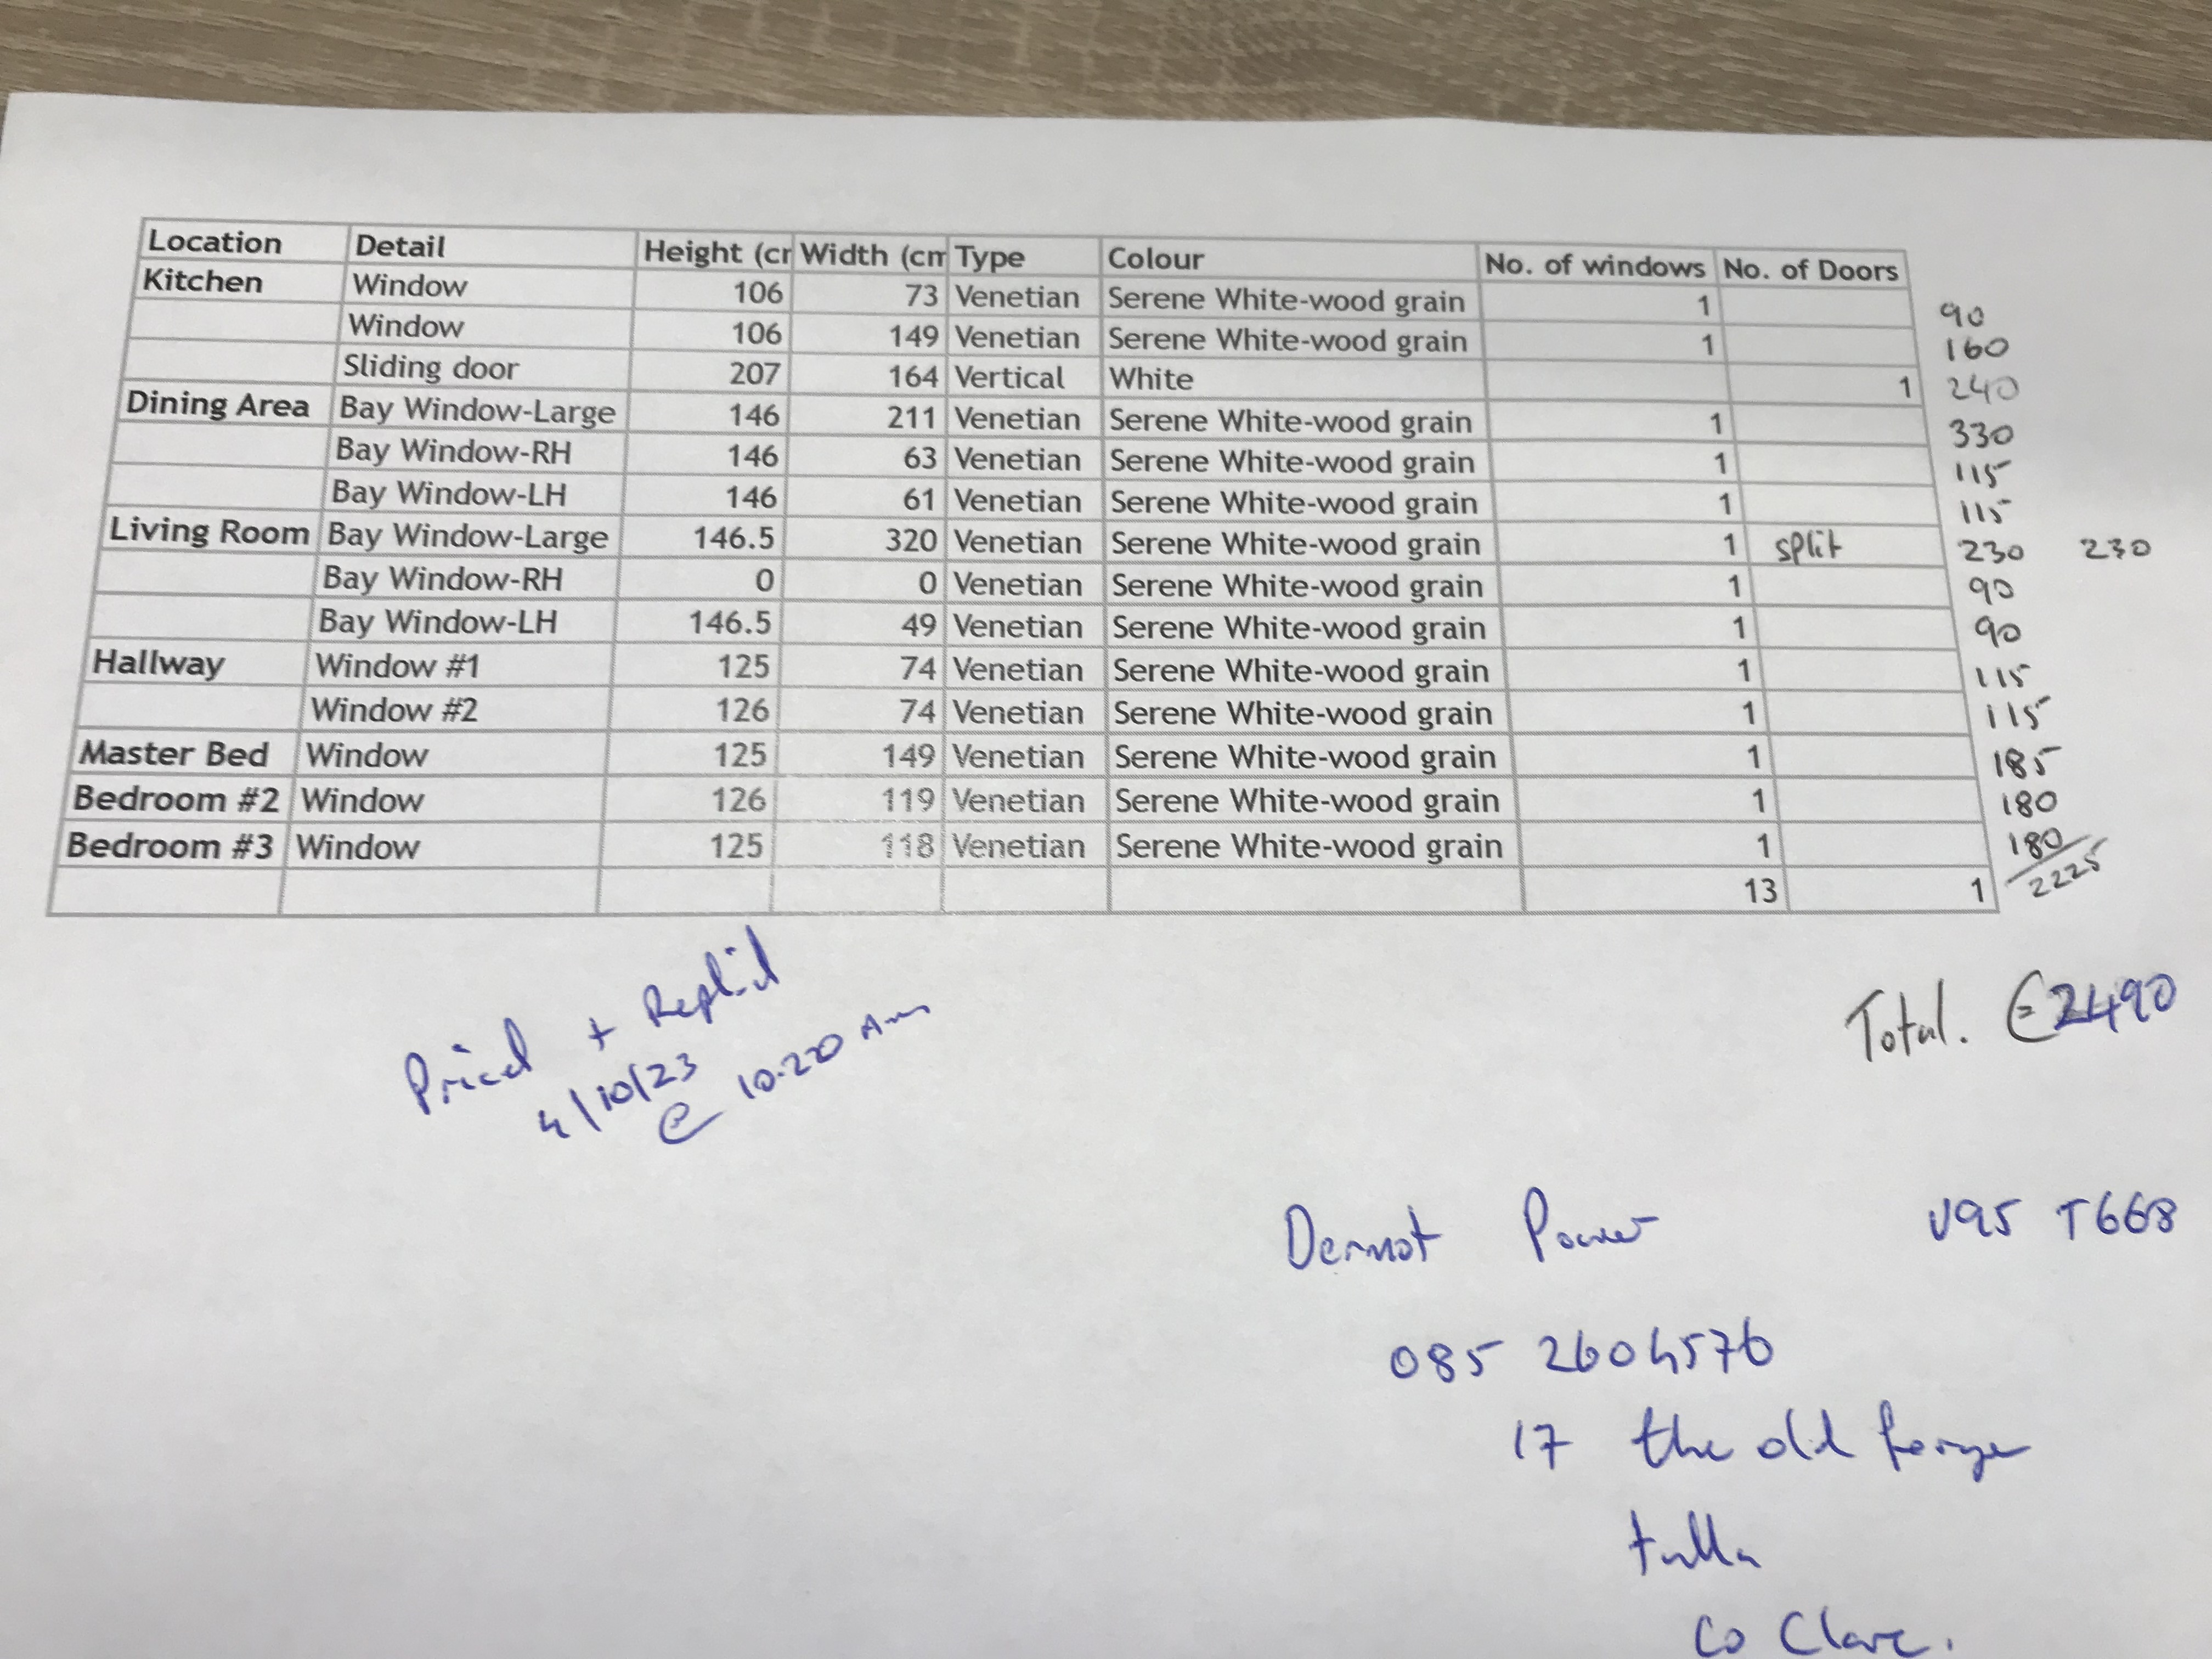 Location Detail Height (cr Width (cm Type Colour No. of windows No. of Doors
Kitchen Window 106 73 Venetian Serene White-wood grain 1 90
Window 106 149 Venetian Serene White-wood grain 1 160
Sliding door 207 164 Vertical White 1 240
Dining Area Bay Window-Large 146 211 Venetian Serene White-wood grain 1 330
Bay Window-RH 146 63 Venetian Serene White-wood grain 1 115
Bay Window-LH 146 61 Venetian Serene White-wood grain 1 115
Living Room Bay Window-Large 146.5 320 Venetian Serene White-wood grain 1 split 230 230
Bay Window-RH 0 0 Venetian Serene White-wood grain 1 90
Bay Window-LH 146.5 49 Venetian Serene White-wood grain 1 90
Hallway Window #1 125 74 Venetian Serene White-wood grain 1 115
Window #2 126 74 Venetian Serene White-wood grain 1 115
Master Bed Window 125 149 Venetian Serene White-wood grain 1 185
Bedroom #2 Window 126 119 Venetian Serene White-wood grain 1 180
Bedroom #3 Window 125 118 Venetian Serene White-wood grain 1 180
13 1 2225
Total. €2490
Priced + Replied
4/10/23
@ 10.20 Am
Dermot Power V95 T668
085 2604576
17 the old forge
tulla
Co Clare.